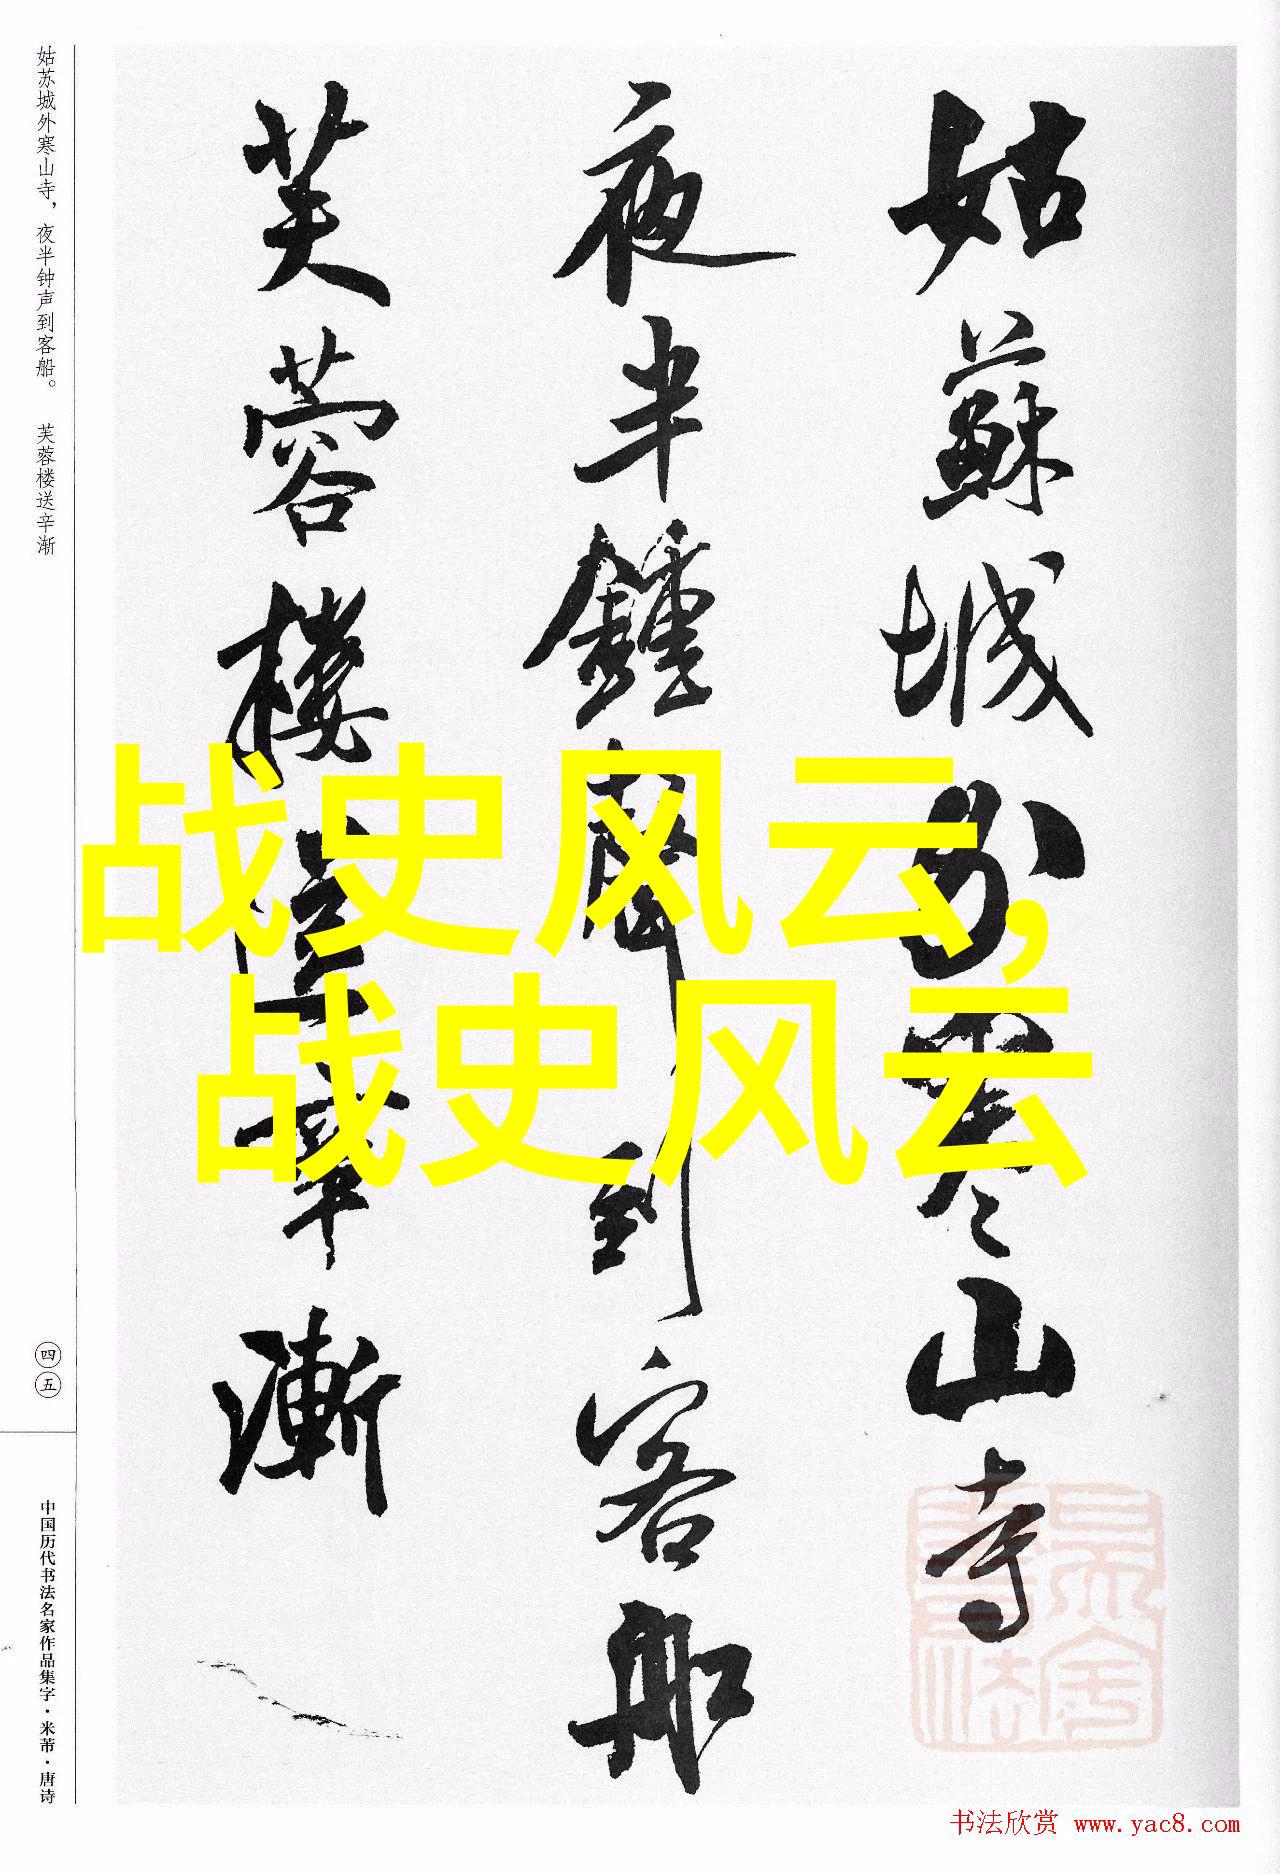 姑蘇城外寒山寺
夜半鍾聲到客船
芙蓉樓送辛漸
战史风云,
战史风云
姑苏城外寒山寺，夜半钟声到客船。 芙蓉楼送辛渐
四五
中国历代书法名家作品集字·米芾·唐诗
书法欣赏 www.yac8.com